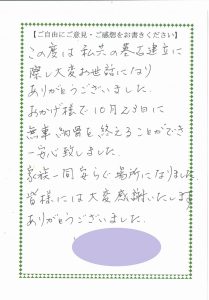 【ご自由にご意見・ご感想をお書きください】
この度は私共の墓石建立に
際し大変お世話になり
ありがとうございました。
おかげ様で10月23日に
無事納骨を終えることができ
一安心致しました。
家族一同安らぐ場所になりました。
皆様には大変感謝いたします
ありがとうございました。